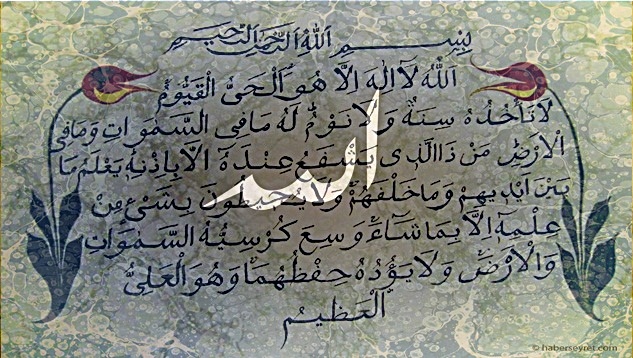 بِسْمِ اللّٰهِ الرَّحْمٰنِ الرَّحِيمِ
اَللّٰهُ لَا اِلٰهَ اِلَّا هُوَ اَلْحَىُّ الْقَيُّومُ
لَا تَأْخُذُهُ سِنَةٌ وَلَا نَوْمٌ لَهُ مَا فِى السَّمٰوَاتِ وَمَا فِى
الْاَرْضِ مَنْ ذَا الَّذِى يَشْفَعُ عِنْدَهُ اِلَّا بِاِذْنِهِ يَعْلَمُ مَا
بَيْنَ اَيْدِيهِمْ وَمَا خَلْفَهُمْ وَلَا يُحِيطُونَ بِشَىْءٍ مِنْ
عِلْمِهِ اِلَّا بِمَا شَاءَ وَسِعَ كُرْسِيُّهُ السَّمٰوَاتِ
وَالْاَرْضَ وَلَا يَؤُدُهُ حِفْظُهُمَا وَهُوَ الْعَلِىُّ
الْعَظِيمُ
الله
© haberseyret.com